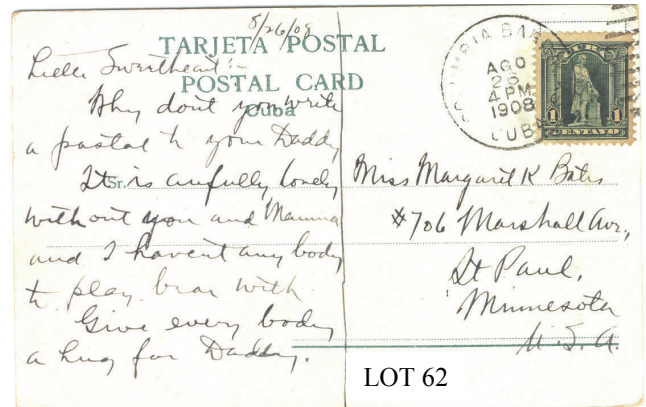 8/26/08
TARJETA POSTAL
POSTAL CARD
Cuba
Little Sweetheart:-
Why dont you write
a postal to your Daddy
It is awfully lonely
without you and Mamma
and I havent any body
to play bear with
Give every body
a hug for Daddy.
COLUMBIA BAR
AGO
26
4 PM
1908
CUBA
CUBA
1 1
CENTAVO
Sr.
Miss Margaret K Bates
#706 Marshall Ave.,
St Paul,
Minnesota
U.S.A.
LOT 62